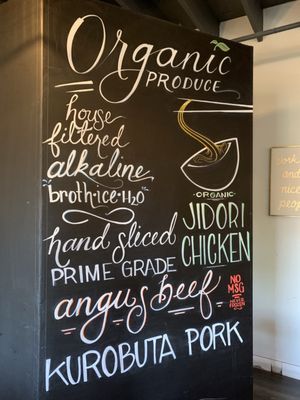 Organic
PRODUCE
house
filtered
alkaline
broth·ice·H2O
ORGANIC
JIDORI
CHICKEN
hand sliced
PRIME GRADE
angus beef
NO
MSG
KUROBUTA PORK
work
and
nice
people